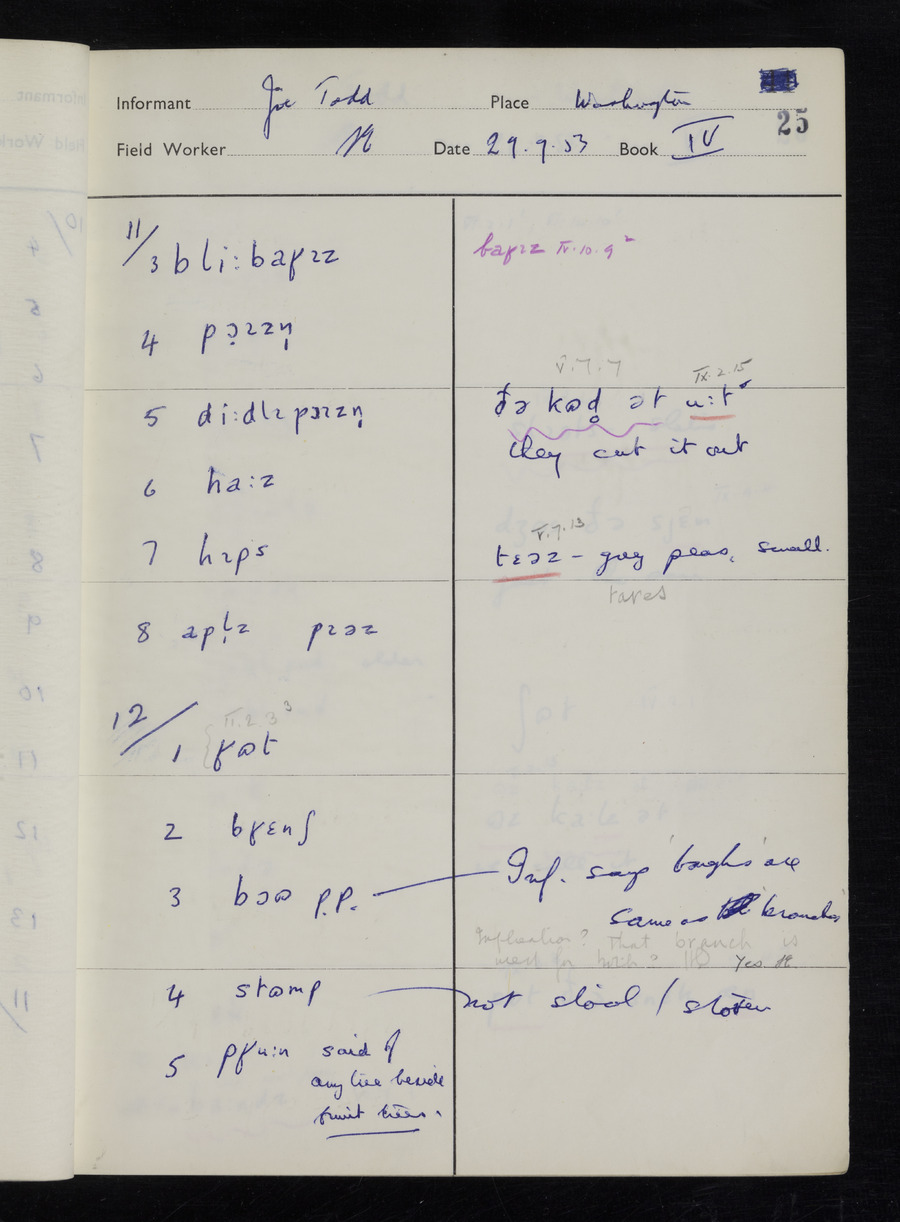 Informant Joe Todd Place Washington
25
Field Worker Date 29.9.53 Book IV
11/
3 bli:baɣɪz
baɣɪz IV.10.9²
4 pɔ̣ɪzn̩
V.7.7 IX.2.15
5 di:dlɪ pɔɪzn̩
ðə kʊd̥ ət u:t
they cut it out
6 ha:z
V.7.13
7 hɪps
tɛəz – grey peas, small.
tares
8 apl̩z pɪəz
12/
II.2.3³
1 ɣʊt
2 bɣɛnʃ
3 bɔʊ p.p.
Inf. says 'boughs' are
same as 'branches'
Implication? That branch is
used for both? Yes.
4 stʊmp
not stool / stoven
5 pɣu:n said of
any tree beside
fruit trees.